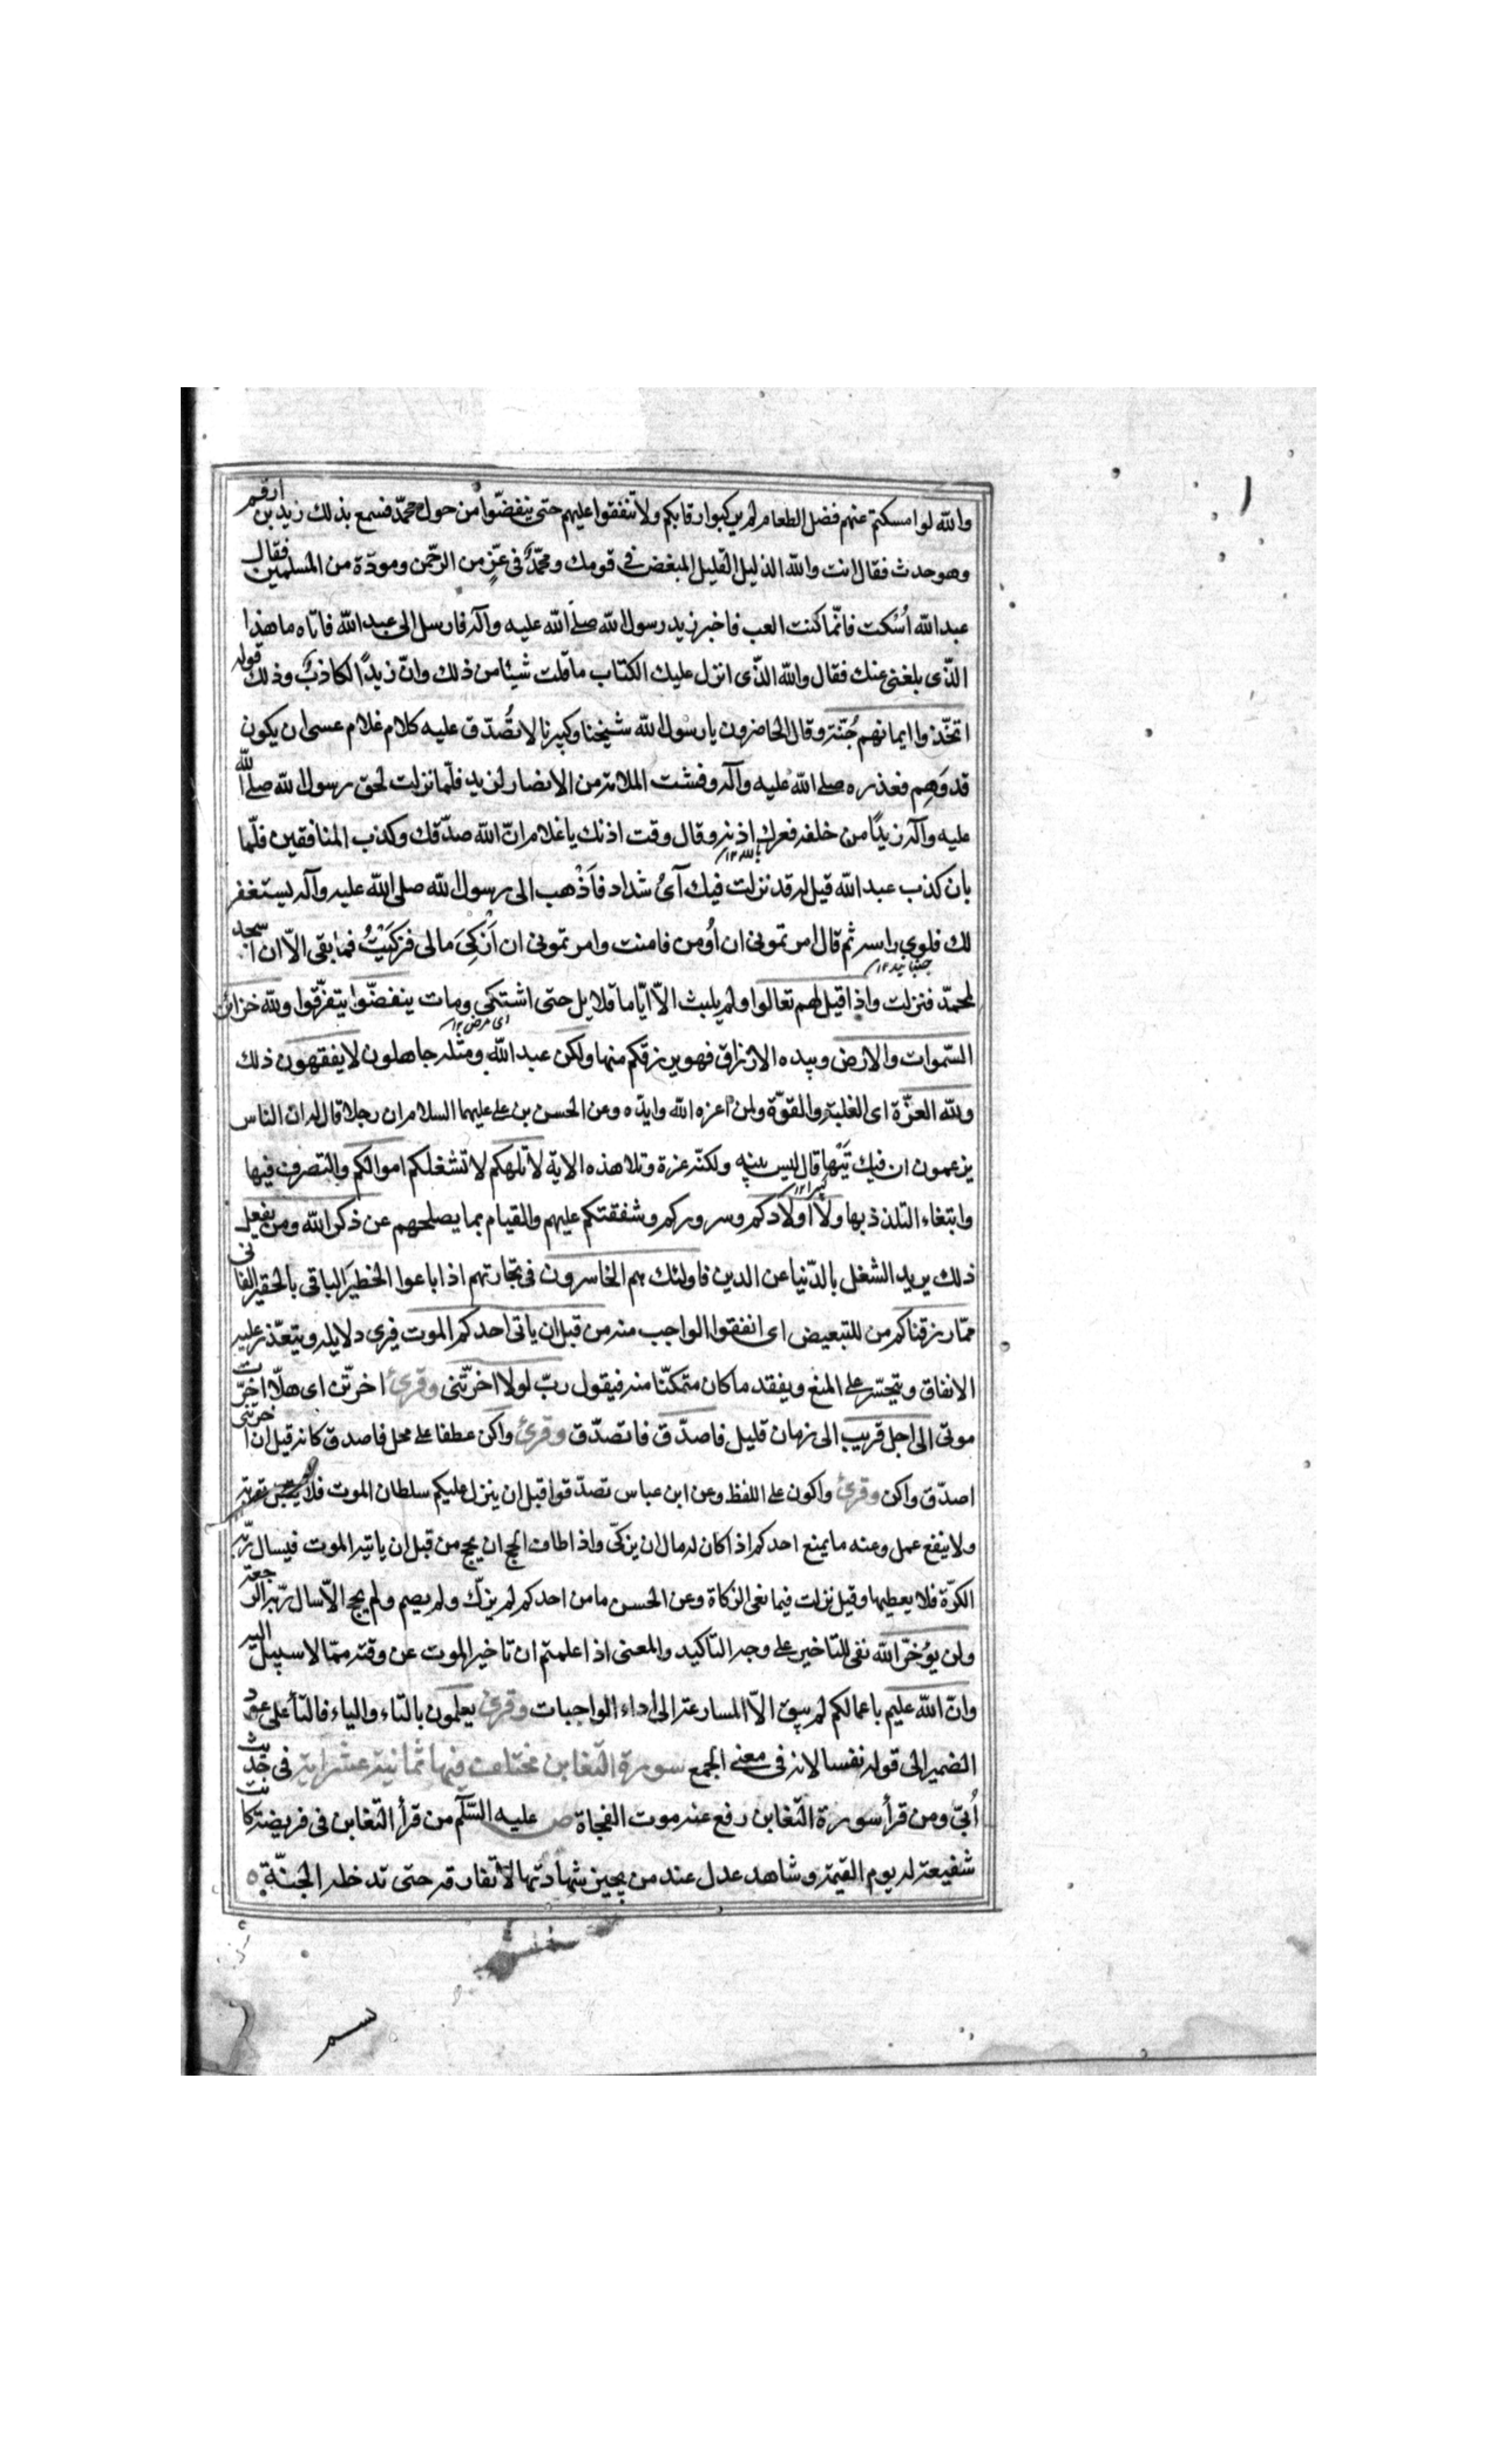 والله لو امسكتم عنهم فضل الطعام لم يركبوا رقابكم ولا تنفقوا عليهم حتى ينفضّوا من حول محمّد فسمع بذلك زيد بن ارقم
وهو حدث فقال انت والله الذليل القليل المبغض فى قومك ومحمّدٌ فى عزّ من الرحمن ومودّة من المسلمين فقال
عبد الله اُسكت فانّما كنت العب فاخبر زيد رسول الله صلى الله عليه وآله فارسل الى عبد الله فاتاه ما هذا
الّذى بلغنى عنك فقال والله الّذى انزل عليك الكتاب ما قلت شيئا من ذلك وانّ زيدًا لكاذبٌ وذلك قوله
اتخّذوا ايمانهم جُنّة وقال الحاضرون يا رسول الله شيخنا وكبيرنا لا تُصدّق عليه كلام غلام عسى ان يكون
قد وَهِم فعذره صلى الله عليه وآله وفشت الملامة من الانصار لزيد فلمّا نزلت لحق رسول الله صلى الله
عليه وآله زيدًا من خلفه فعرك اذنه وقال وقت اذنك يا غلام انّ الله صدّقك وكذب المنافقين فلمّا
بان كذب عبد الله قيل له قد نزلت فيك آىٌ شداد فاَذْهب الى رسول الله صلى الله عليه وآله يستغفر
لك فلوى راسه ثم قال امرتمونى ان اُومن فامنت وامرتمونى ان اُزكِّىَ مالى فزكيّتُ فما بقى الاّ ان اسجد
لمحمّد فنزلت واذا قيل لهم تعالوا ولم يلبث الاّ ايّاما قلايل حتى اشتكى ومات ينفضّوا يتفرّقوا ولله خزائن
اى مرض ١٢
السّموات والارض وبيده الارزاق فهو يرزقكم منها ولكن عبد الله ومثله جاهلون لا يفقهون ذلك
ولله العزّة اى الغلبة والقوّة ولمن اعزه الله وايده وعن الحسن بن على عليهما السلام ان رجلا قال له ان الناس
يزعمون ان فيك تَيْها قال ليس بتيه ولكنه عزة وتلا هذه الاية لا تلهكم لا تشغلكم اموالكم والتصرف فيها
وابتغاء التلذذ بها ولا اولادكم وسروركم وشفقتكم عليهم والقيام بما يصلحهم عن ذكر الله ومن يفعل
ذلك يريد الشغل بالدّنيا عن الدين فاولئك هم الخاسرون فى تجارتهم اذا باعوا الخطير الباقى بالحقير الفانى
ممّا رزقناكم من للتبعيض اى انفقوا الواجب منه من قبل ان ياتى احدكم الموت فيرى دلايله ويتعذّر عليه
الانفاق ويتحسّر على المنع ويفقد ما كان متمكّنا منه فيقول ربّ لولا اخرتّنى وقرئ اخرتّن اى هلّا اخرّت
موتى الى اجل قريب الى زمان قليل فاصدّق فاتصدّق وقرئ واكن عطفا على محل فاصدق كانه قيل ان اخرتنى
اصدّق واكن وقرئ واكون على اللفظ وعن ابن عباس تصدّقوا قبل ان ينزل عليكم سلطان الموت فلا توبة
ولا ينفع عمل وعنه ما يمنع احدكم اذا كان له مال ان يزكّى واذا اطاق الحج ان يحج من قبل ان ياتيه الموت فيسال ربّه
الكرّة فلا يعطيها وقيل نزلت فى مانعى الزكاة وعن الحسن ما من احدكم لم يزكّ ولم يصم ولم يحج الاّ سال ربّه الرجعة
ولن يؤخّر الله نفى للتاخير على وجه التاكيد والمعنى اذا علمتم ان تاخير الموت عن وقته ممّا لا سبيل اليه
وانّ الله عليم باعمالكم لم يبق الاّ المسارعة الى اداء الواجبات وقرئ يعلمون بالتاء والياء فالتأ على عود
الضمير الى قوله نفسا لانه فى معنى الجمع سورة التغابن مختلف فيها ثمانية عشر اية فى حديث
اُبىّ ومن قرأ سورة التغابن رفع عنه موت الفجاة ص عليه السّلم من قرأ التغابن فى فريضة كانت
شفيعة له يوم القيمة وشاهد عدل عند من يجيز شهادتها لا تفارقه حتى تدخله الجنّة